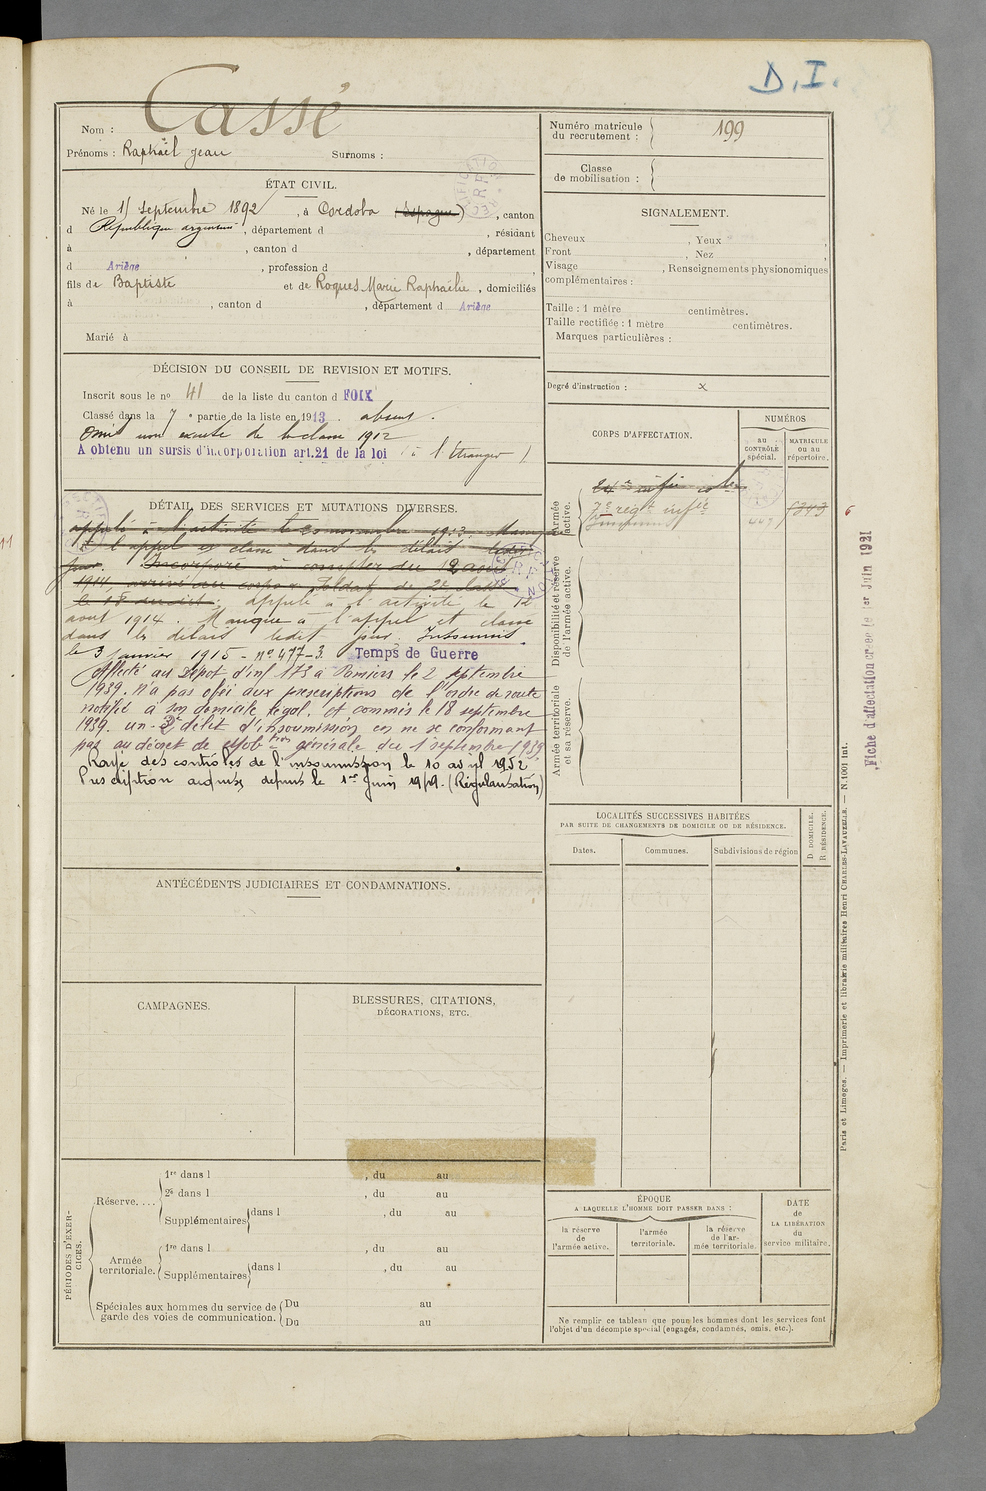 D.I.
Nom : Cassé
Prénoms : Raphaël Jean Surnoms :
ÉTAT CIVIL.
Né le 15 Septembre 1892, à Cordoba (Espagne), canton
d République argentine, département d , résidant
à , canton d , département
d Ariège , profession d ,
fils de Baptiste et de Roques Marie Raphaëlle, domiciliés
à , canton d , département d Ariège
Marié à
DÉCISION DU CONSEIL DE REVISION ET MOTIFS.
Inscrit sous le no 41 de la liste du canton d FOIX
Classé dans la 7e partie de la liste en 1913. absent.
Omis non excusé de la classe 1912
A obtenu un sursis d'incorporation art.21 de la loi à l'étranger
DÉTAIL DES SERVICES ET MUTATIONS DIVERSES.
appelé à l'activité le 20 novembre 1913. Manque
à l'appel et classé dans les délais ledit
jour. Incorporé à compter du 12 août
1914, arrivé au corps Soldat de 2e classe
le 18 dudit; appelé à l'activité le 12
août 1914. Manque à l'appel et classé
dans les délais ledit jour. Insoumis
le 3 janvier 1915 - no 477-3. Temps de Guerre
Affecté au Dépôt d'inf 173 à Pamiers le 2 septembre
1939. N'a pas obéi aux prescriptions de l'ordre de route
notifié à son domicile légal, et commis le 18 septembre
1939. un 2e délit d'insoumission en ne se conformant
pas au décret de Mobtion générale du 1 septembre 1939
Rayé des contrôles de l'insoumission le 10 avril 1952
Prescription acquise depuis le 1er Juin 1949. (Régularisation)
ANTÉCÉDENTS JUDICIAIRES ET CONDAMNATIONS.
CAMPAGNES.
BLESSURES, CITATIONS,
DÉCORATIONS, ETC.
PÉRIODES D'EXERCICES.
Réserve....
1re dans l , du au
2e dans l , du au
Supplémentaires dans l , du au
Armée territoriale.
1re dans l , du au
Supplémentaires dans l , du au
Spéciales aux hommes du service de garde des voies de communication.
Du au
Du au
Numéro matricule du recrutement : 199
Classe de mobilisation :
SIGNALEMENT.
Cheveux , Yeux ,
Front , Nez ,
Visage , Renseignements physionomiques
complémentaires :
Taille : 1 mètre centimètres.
Taille rectifiée : 1 mètre centimètres.
Marques particulières :
Degré d'instruction : x
CORPS D'AFFECTATION.
NUMÉROS
au CONTRÔLE spécial.
MATRICULE ou au répertoire.
Armée active.
24e infie cole
7e régt infie
Insoumis
449
5343
6
Disponibilité et réserve de l'armée active.
Armée territoriale et sa réserve.
LOCALITÉS SUCCESSIVES HABITÉES
PAR SUITE DE CHANGEMENTS DE DOMICILE OU DE RÉSIDENCE.
Dates.
Communes.
Subdivisions de région
D. DOMICILE.
R. RÉSIDENCE.
ÉPOQUE
A LAQUELLE L'HOMME DOIT PASSER DANS :
la réserve de l'armée active.
l'armée territoriale.
la réserve de l'armée territoriale.
DATE de LA LIBÉRATION du service militaire.
Ne remplir ce tableau que pour les hommes dont les services font
l'objet d'un décompte spécial (engagés, condamnés, omis, etc.).
Paris et Limoges. — Imprimerie et librairie militaires Henri CHARLES-LAVAUZELLE. — N. 1001 int.
Fiche d'affectation créée le 1er Juin 1921